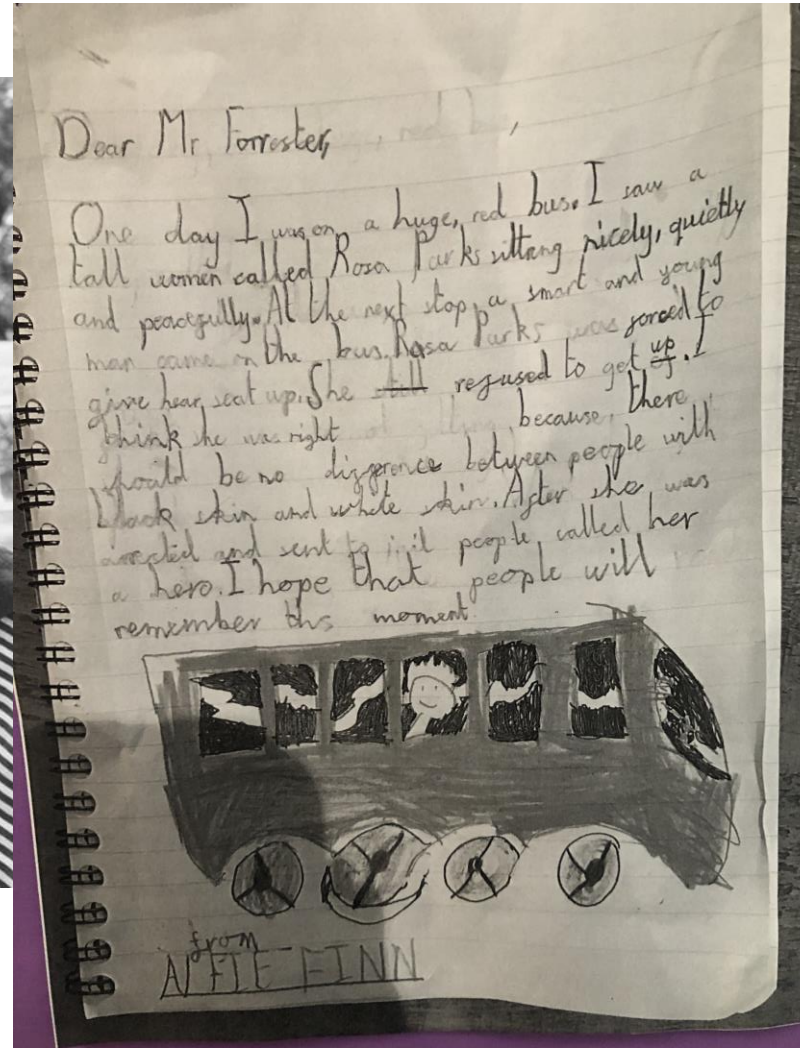 Dear Mr Forrester,
One day I was on a huge, red bus. I saw a
tall women called Rosa Parks sitting nicely, quietly
and peacefully. At the next stop a smart and young
man came on the bus. Rosa Parks was forced to
give hear seat up. She refused to get up. I
think she was right because there
should be no difference between people with
black skin and white skin. After she was
arrested and sent to jail people called her
a hero. I hope that people will
remember this moment
from
ALFIE FINN